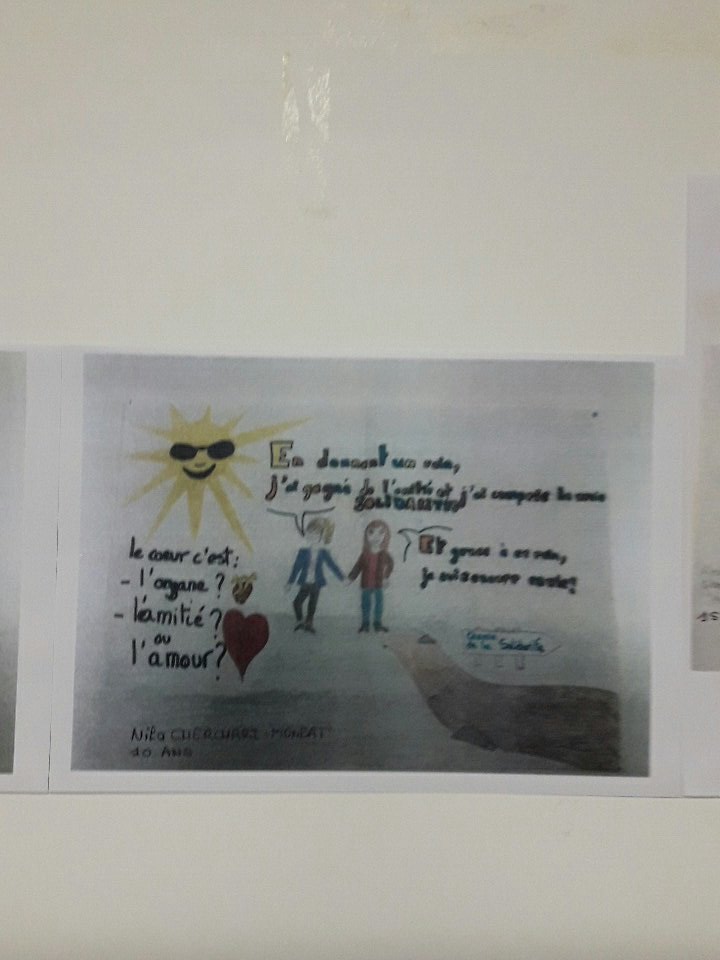 En donnant un rein,
j'ai gagné de l'amitié et j'ai compris la vraie
SOLIDARITÉ
Et grace à ce rein,
je suis encore
le coeur c'est:
- l'organe?
- l'amitié?
ou
l'amour?
Chemin
de la Solidarité
10 ANS
15